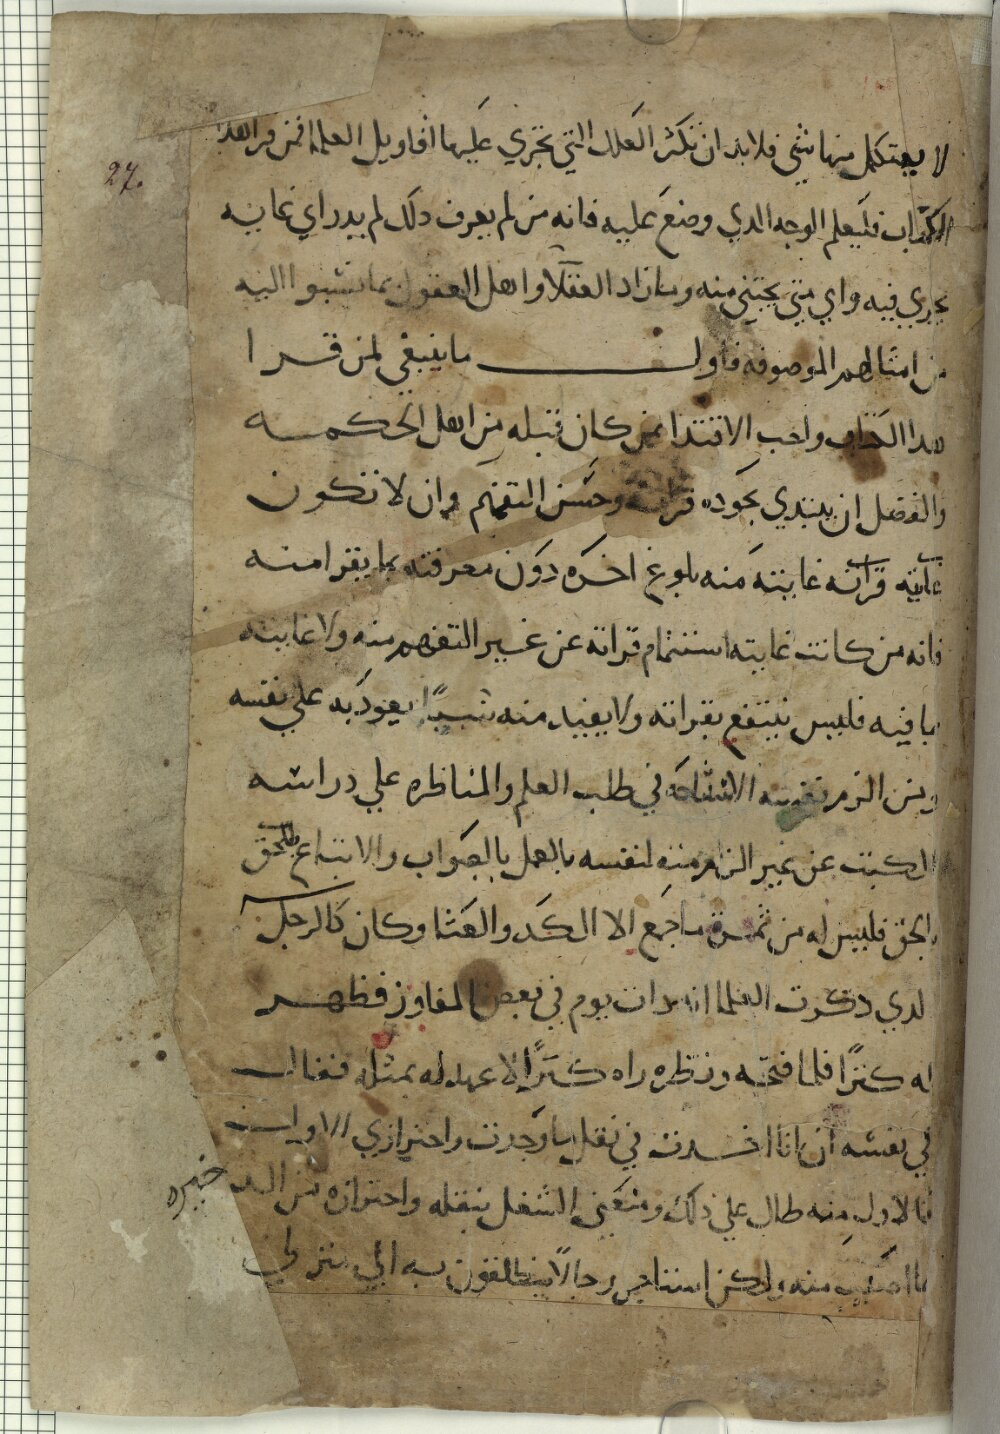 لا يستكمل منها شي فلا بد ان تكثر العلل التي تجري عليها اقاويل العلما فمن قرا هدا
27.
الكتاب فليعلم الوجه الدي وضع عليه فانه من لم يعرف دلك لم يدر اي غايه
يجري فيه واي شي يجتني منه وما زاد العقلا واهل العقول بما نسبوا اليه
من امثالهم الموصوفه فاول ما ينبغي لمن قرا
هدا الكتاب واحب الاقتدا بمن كان قبله من اهل الحكمه
والفضل ان يبتدي بجوده قراته وحسن التفهم وان لا تكون
غايته قراته غايته منه بلوغ اخره دون معرفته بما يقرا منه
فانه من كانت غايته استتمام قراته عن غير التفهم منه ولا غايته
بما فيه فليس ينتفع بقراته ولا يفيد منه شيًا يعود به علي نفسه
ومن الزم نفسه في طلب العلم والمناظره علي دراسه
الكتب عن غير الزام منه لنفسه بالعمل بالصواب والاتباع للحق
بالحق فليس له من ثمرة ما جمع الا الكد والعنا وكان كالرجل
الدي دكرت العلما انه دات يوم في بعض المفاوز فظهر
له كنزًا فلما فتحه ونظره راه كنزًا لا عهد له بمثله فقال
في نفسه ان انا اخدت في نقل ما وجدت واحترازي الاول
فالاول منه طال علي دلك ومنعني الشغل بنقله واحترازه من
خيره
ما اصيب منه ولكن استاجر رجالًا ينطلقون به الي منزلي